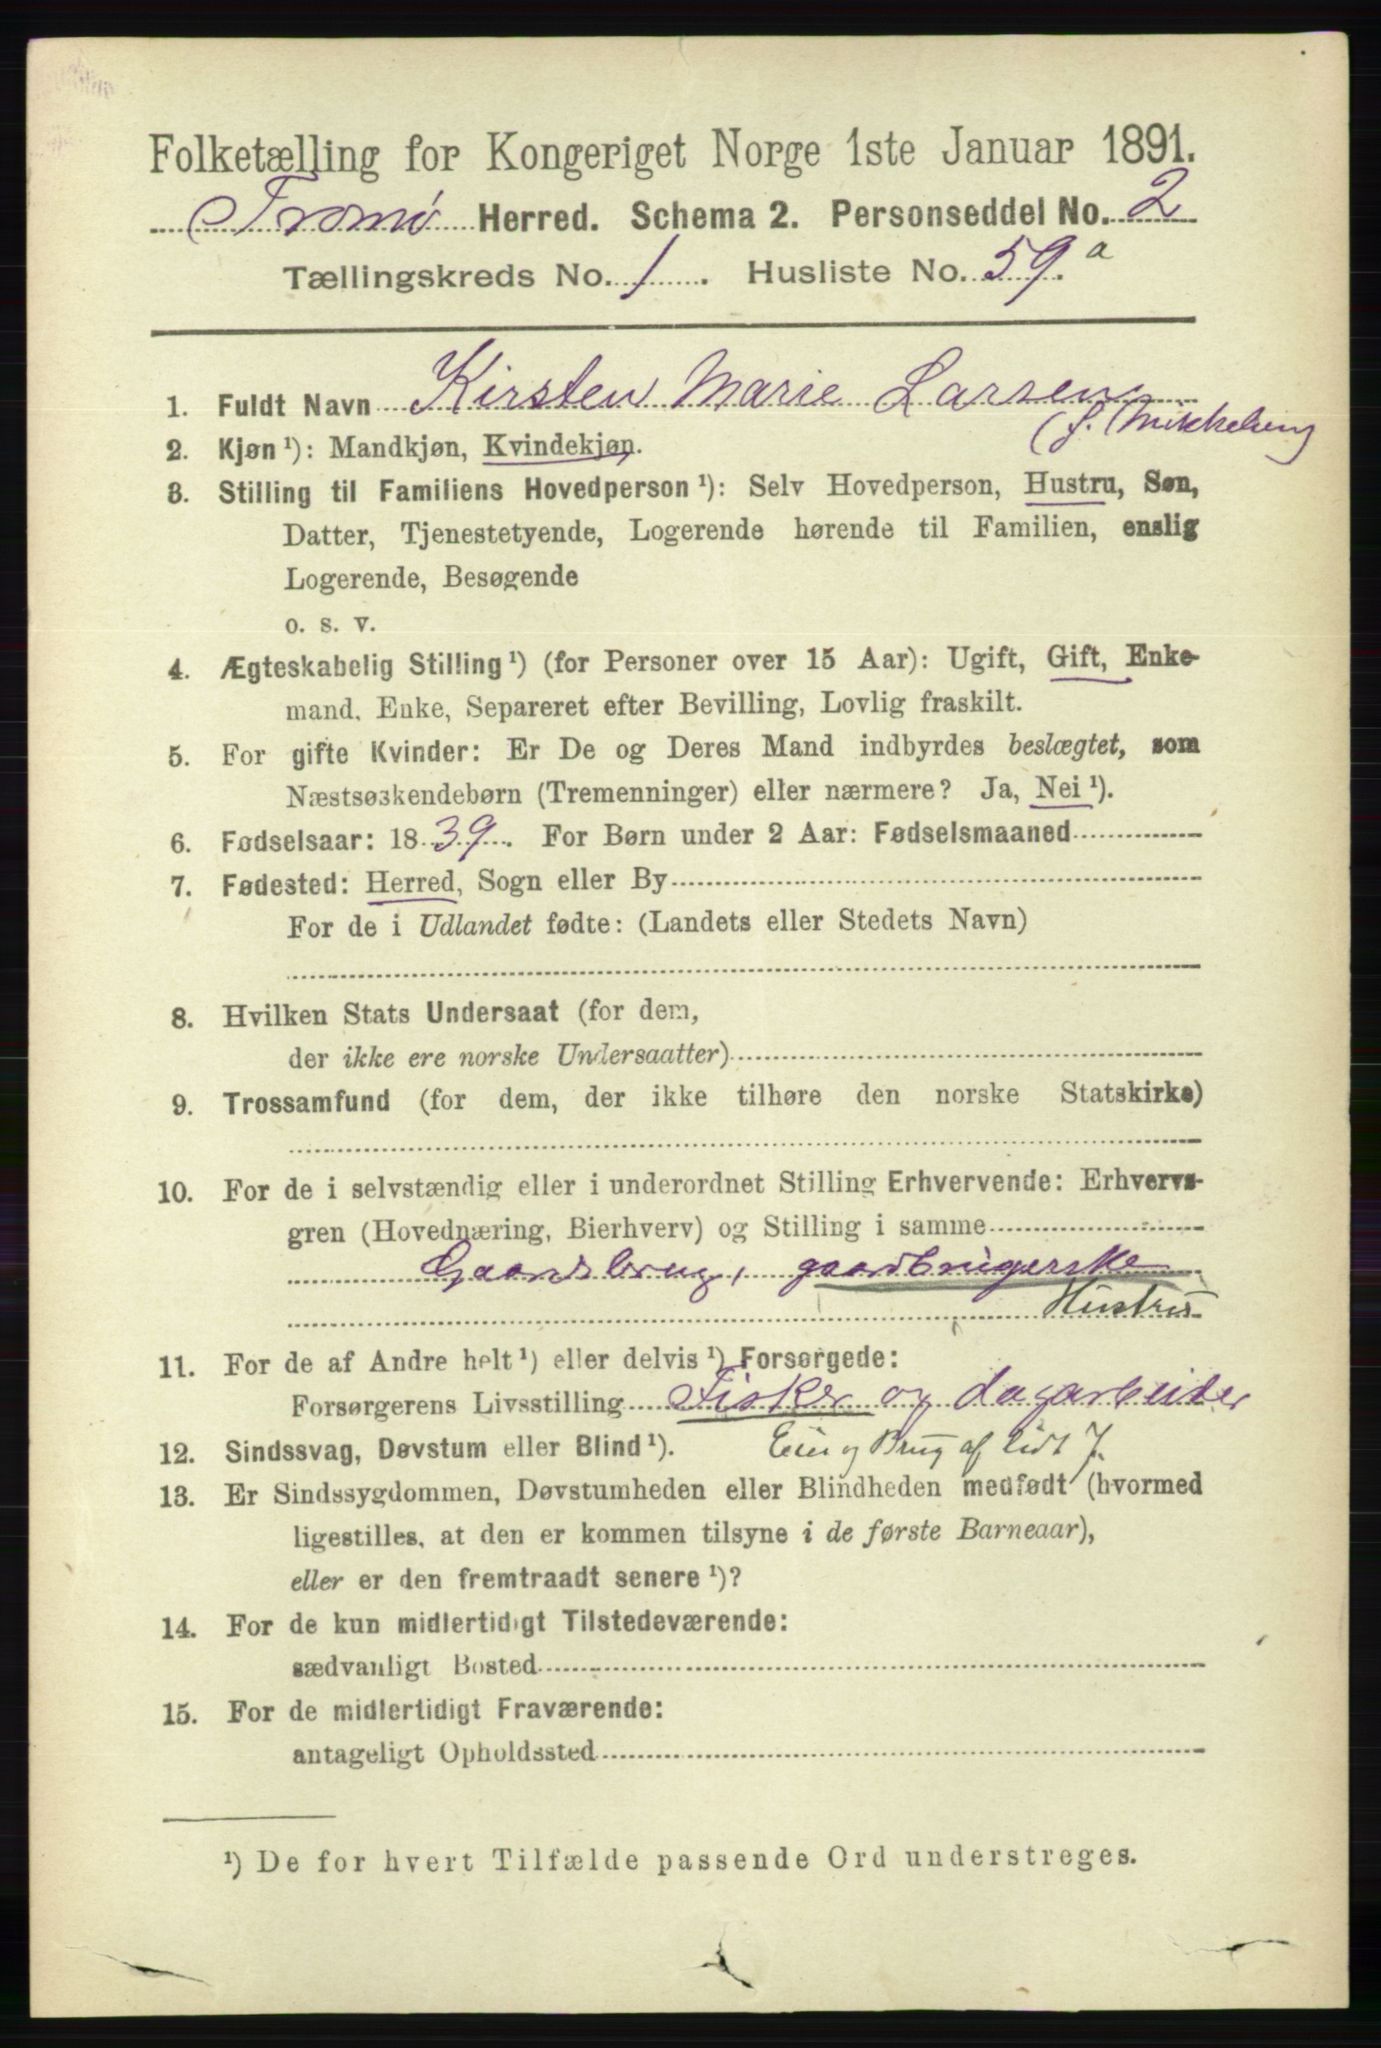 Folketælling for Kongeriget Norge 1ste Januar 1891.
Tromø Herred. Schema 2. Personseddel No. 2
Tællingskreds No. 1. Husliste No. 59.a
1. Fuldt Navn Kirsten Marie Larsen
(f.
2. Kjøn¹): Mandkjøn, Kvindekjøn.
3. Stilling til Familiens Hovedperson¹): Selv Hovedperson, Hustru, Søn,
Datter, Tjenestetyende, Logerende hørende til Familien, enslig
Logerende, Besøgende
o. s. v.
4. Ægteskabelig Stilling¹) (for Personer over 15 Aar): Ugift, Gift, Enke-
mand, Enke, Separeret efter Bevilling, Lovlig fraskilt.
5. For gifte Kvinder: Er De og Deres Mand indbyrdes beslægtet, som
Næstsøskendebørn (Tremenninger) eller nærmere? Ja, Nei¹).
6. Fødselsaar: 1839. For Børn under 2 Aar: Fødselsmaaned
7. Fødested: Herred, Sogn eller By
For de i Udlandet fødte: (Landets eller Stedets Navn)
8. Hvilken Stats Undersaat (for dem,
der ikke ere norske Undersaatter)
9. Trossamfund (for dem, der ikke tilhøre den norske Statskirke)
10. For de i selvstændig eller i underordnet Stilling Erhvervende: Erhvervs-
gren (Hovednæring, Bierhverv) og Stilling i samme
Gaardsbrug, gaardbrugerske
Hustru
11. For de af Andre helt¹) eller delvis¹) Forsørgede:
Forsørgerens Livsstilling Fisker og dagarbeider
12. Sindssvag, Døvstum eller Blind¹). Eier og Brug af lidt J.
13. Er Sindssygdommen, Døvstumheden eller Blindheden medfødt (hvormed
ligestilles, at den er kommen tilsyne i de første Barneaar),
eller er den fremtraadt senere¹)?
14. For de kun midlertidigt Tilstedeværende:
sædvanligt Bosted
15. For de midlertidigt Fraværende:
antageligt Opholdssted
¹) De for hvert Tilfælde passende Ord understreges.